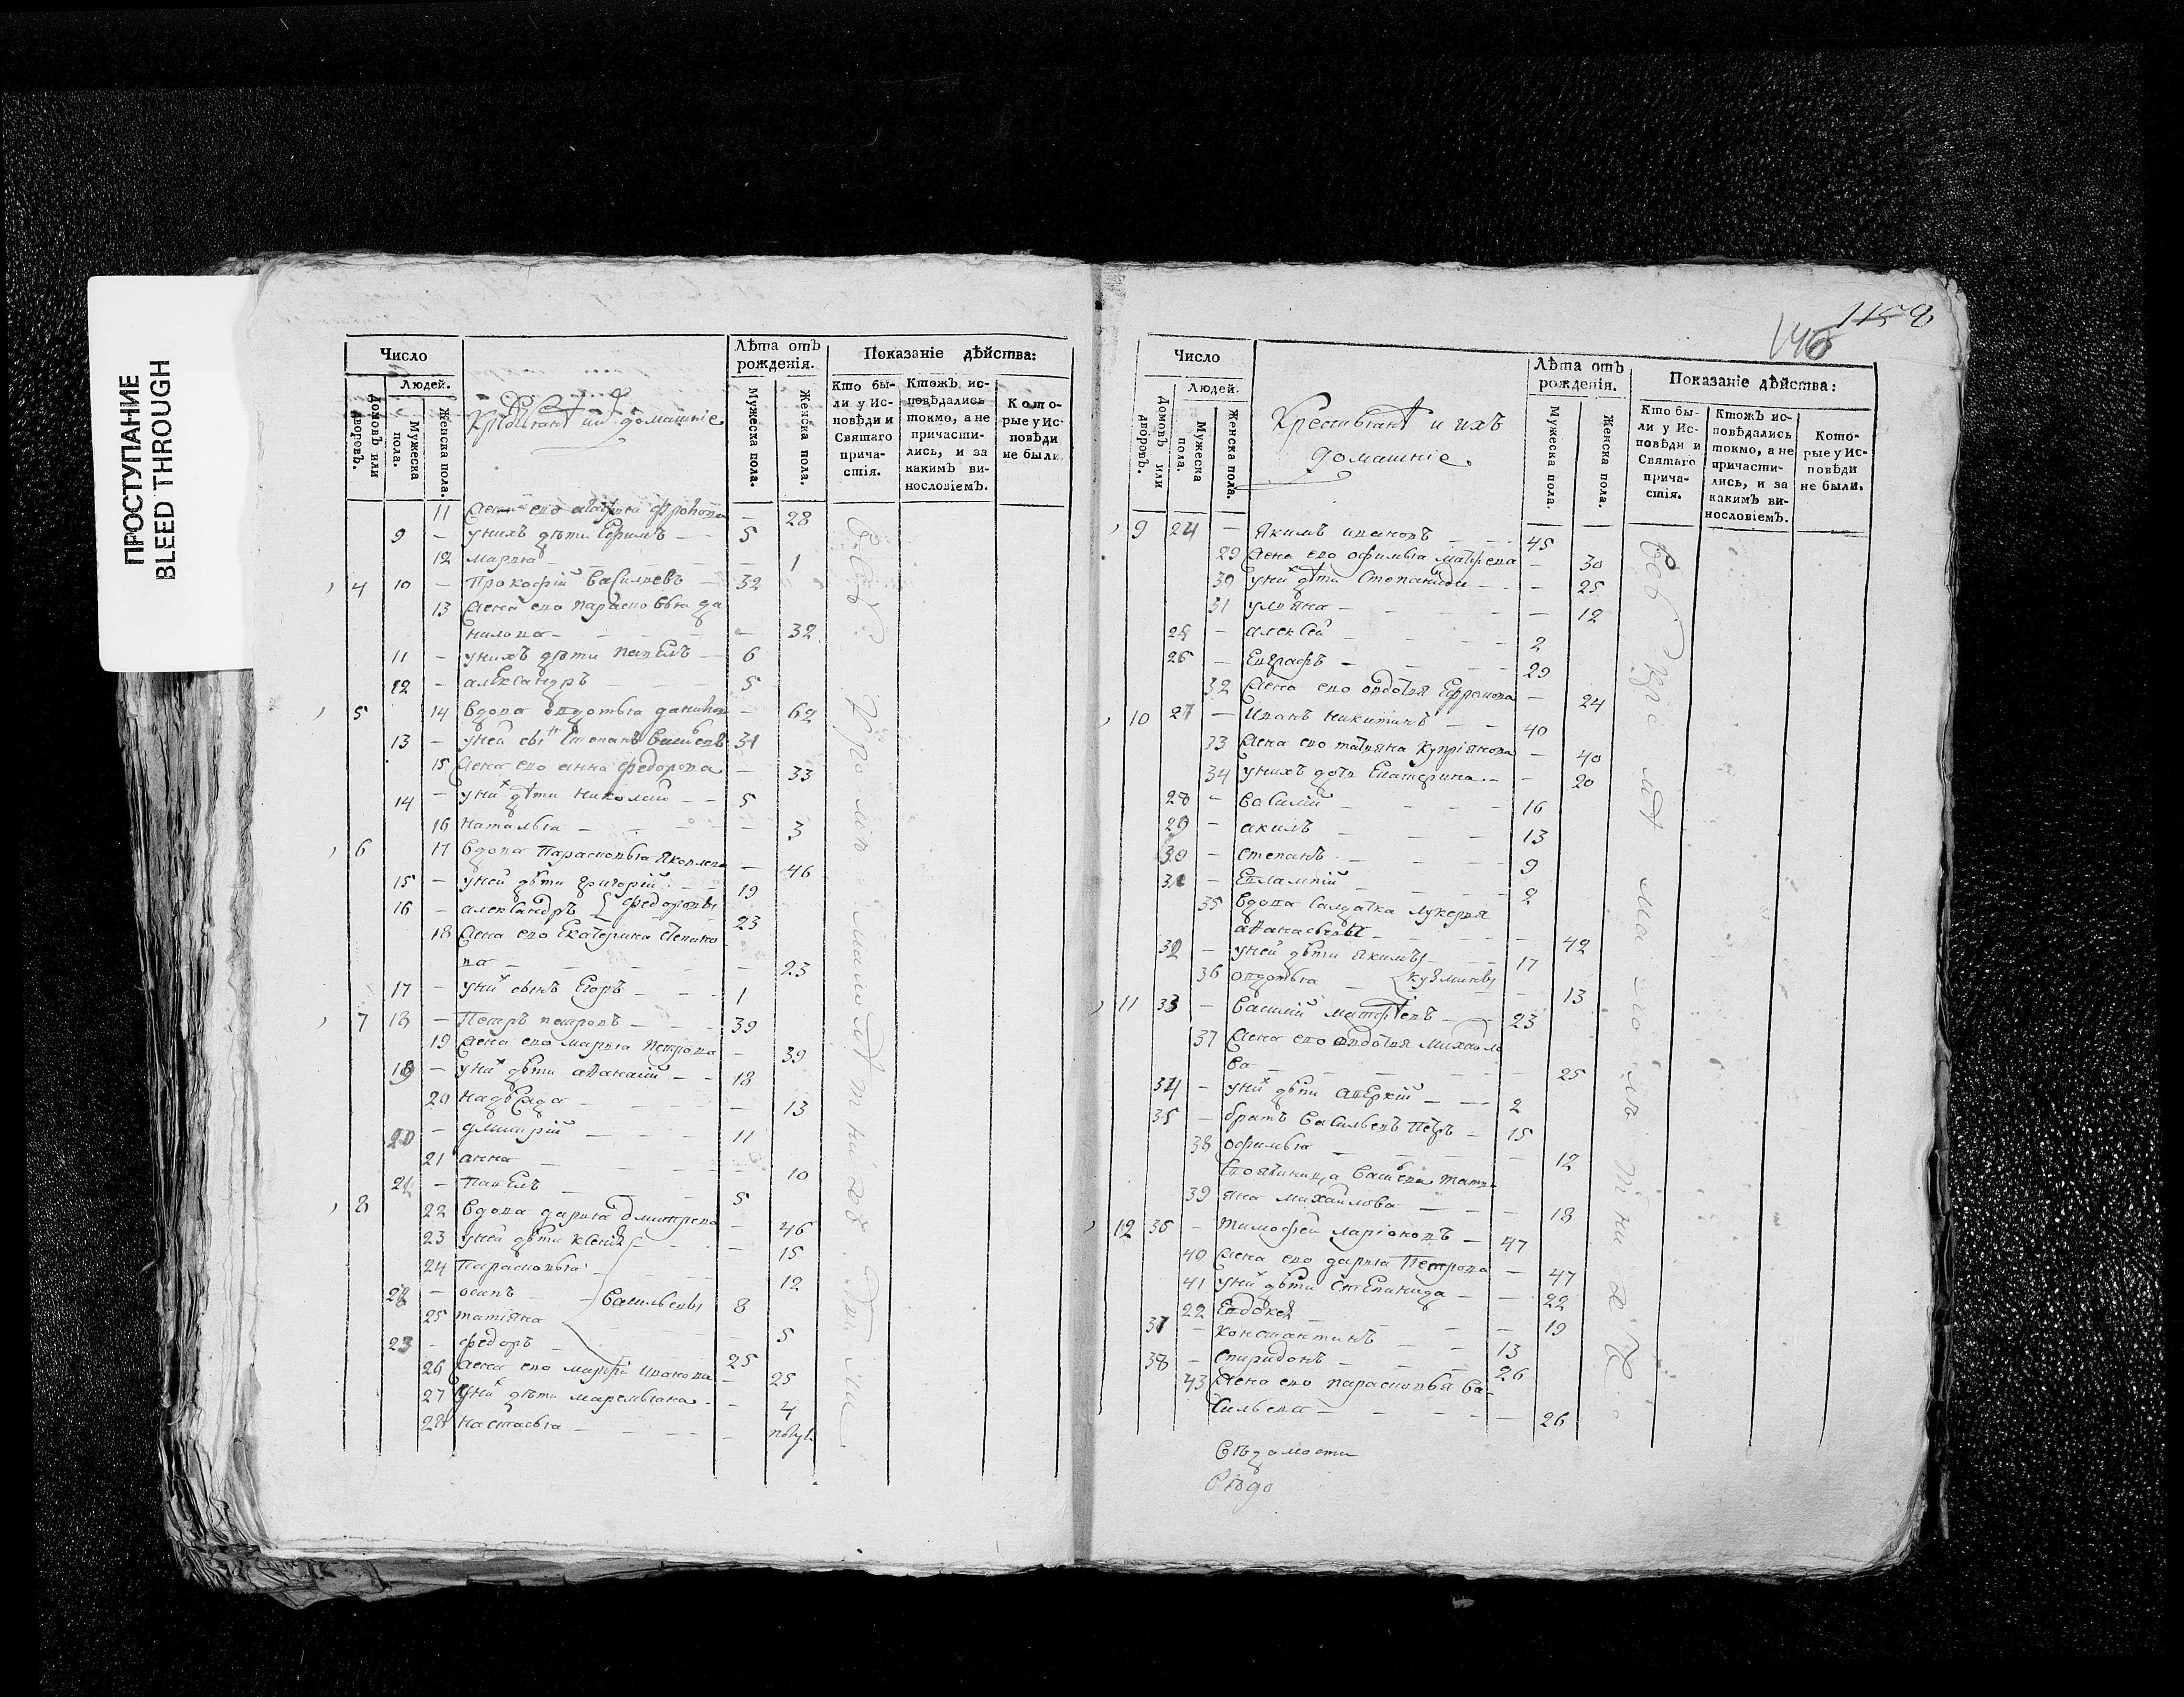 ПРОСТУПАНИЕ
BLEED THROUGH
Число
Людей.
Домовъ или дворовъ.
Мужеска пола.
Женска пола.
домашніе
Лѣта отъ рожденія.
Мужеска пола.
Женска пола.
Показаніе дѣйства:
Кто были у Исповѣди и Святаго причастія.
Ктожъ исповѣдались токмо, а не причастились, и за какимъ винословіемъ.
Которые у Исповѣди не были.
11 Жена его 28
9 - унихъ дѣти Ефимъ - - 5
12 марѳа - - 1
4 10 - Прокофій Васильевъ - 32
13 Жена его парасковья да
нилова - - 32
11 - унихъ дѣти павелъ - 6
12 - александръ - - 5
5 14 вдова авдотья - 62
13 - уней сынъ Степанъ 31
15 Жена его анна федорова - 33
14 - уних дѣти николай - - 5
16 наталья - - 3
6 17 вдова Парасковья яковлева - 46
15 - уней дѣти григорій - - 19
16 - александръ федоровы 23
18 Жена его Екатерина степано
ва - - 23
17 - уних сынъ Егоръ - - 1
7 18 - Петръ петровъ - - 39
19 Жена его марья петрова - 39
19 - уних дѣти аѳанасій - - 18
20 надежда - - 13
20 - дмитрій - - 11
21 анна - - 10
21 - павелъ - - 5
8 22 вдова дарья дмитрева - 46
23 уней дѣти - - 15
24 парасковья - - 12
22 - осипъ - васильевы 8
25 татіяна - - 5
23 - федоръ - - 25
26 Жена его ивановна - 25
27 уних дѣти маремьяна - - 4
28 настасья - -
115
146
Число
Людей.
Домовъ или дворовъ.
Мужеска пола.
Женска пола.
Крестьянѣ и ихъ
домашніе
Лѣта отъ рожденія.
Мужеска пола.
Женска пола.
Показаніе дѣйства:
Кто были у Исповѣди и Святаго причастія.
Ктожъ исповѣдались токмо, а не причастились, и за какимъ винословіемъ.
Которые у Исповѣди не были.
9 24 - якимъ ивановъ - - 45
29 Жена его офимья матфева - 30
30 уних дѣти Степанида - - 25
31 ульяна - - 12
25 - алексей - - 2
26 - Евграфъ - - 29
32 Жена его авдотья Ефремова - 24
10 27 - иванъ никитинъ - - 40
33 Жена его татьяна купріянова - 40
34 унихъ дочь Екатерина - - 20
28 - василій - - 16
29 - акимъ - - 13
30 - степанъ - - 9
31 - Евлампій - - 2
35 вдова салдатка лукерья
аѳанасьева - - 42
32 - уней дѣти якимъ - 17
36 авдотья - кузмины - 13
11 33 - Василій матфѣевъ - - 23
37 Жена его авдотья михайло
ва - - 25
34 - уних дѣти аверкій - - 2
35 - братъ васильевъ петръ - 15
38 офимья - - 12
39 яна михайлова - - 18
12 36 - тимофей ларіоновъ - 47
40 Жена его дарья петрова - 47
41 уних дѣти степанида - - 22
22 - - 19
37 - константинъ - - 13
38 - спиридонъ - - 26
43 Жена его парасковья ва-
сильева - - 26